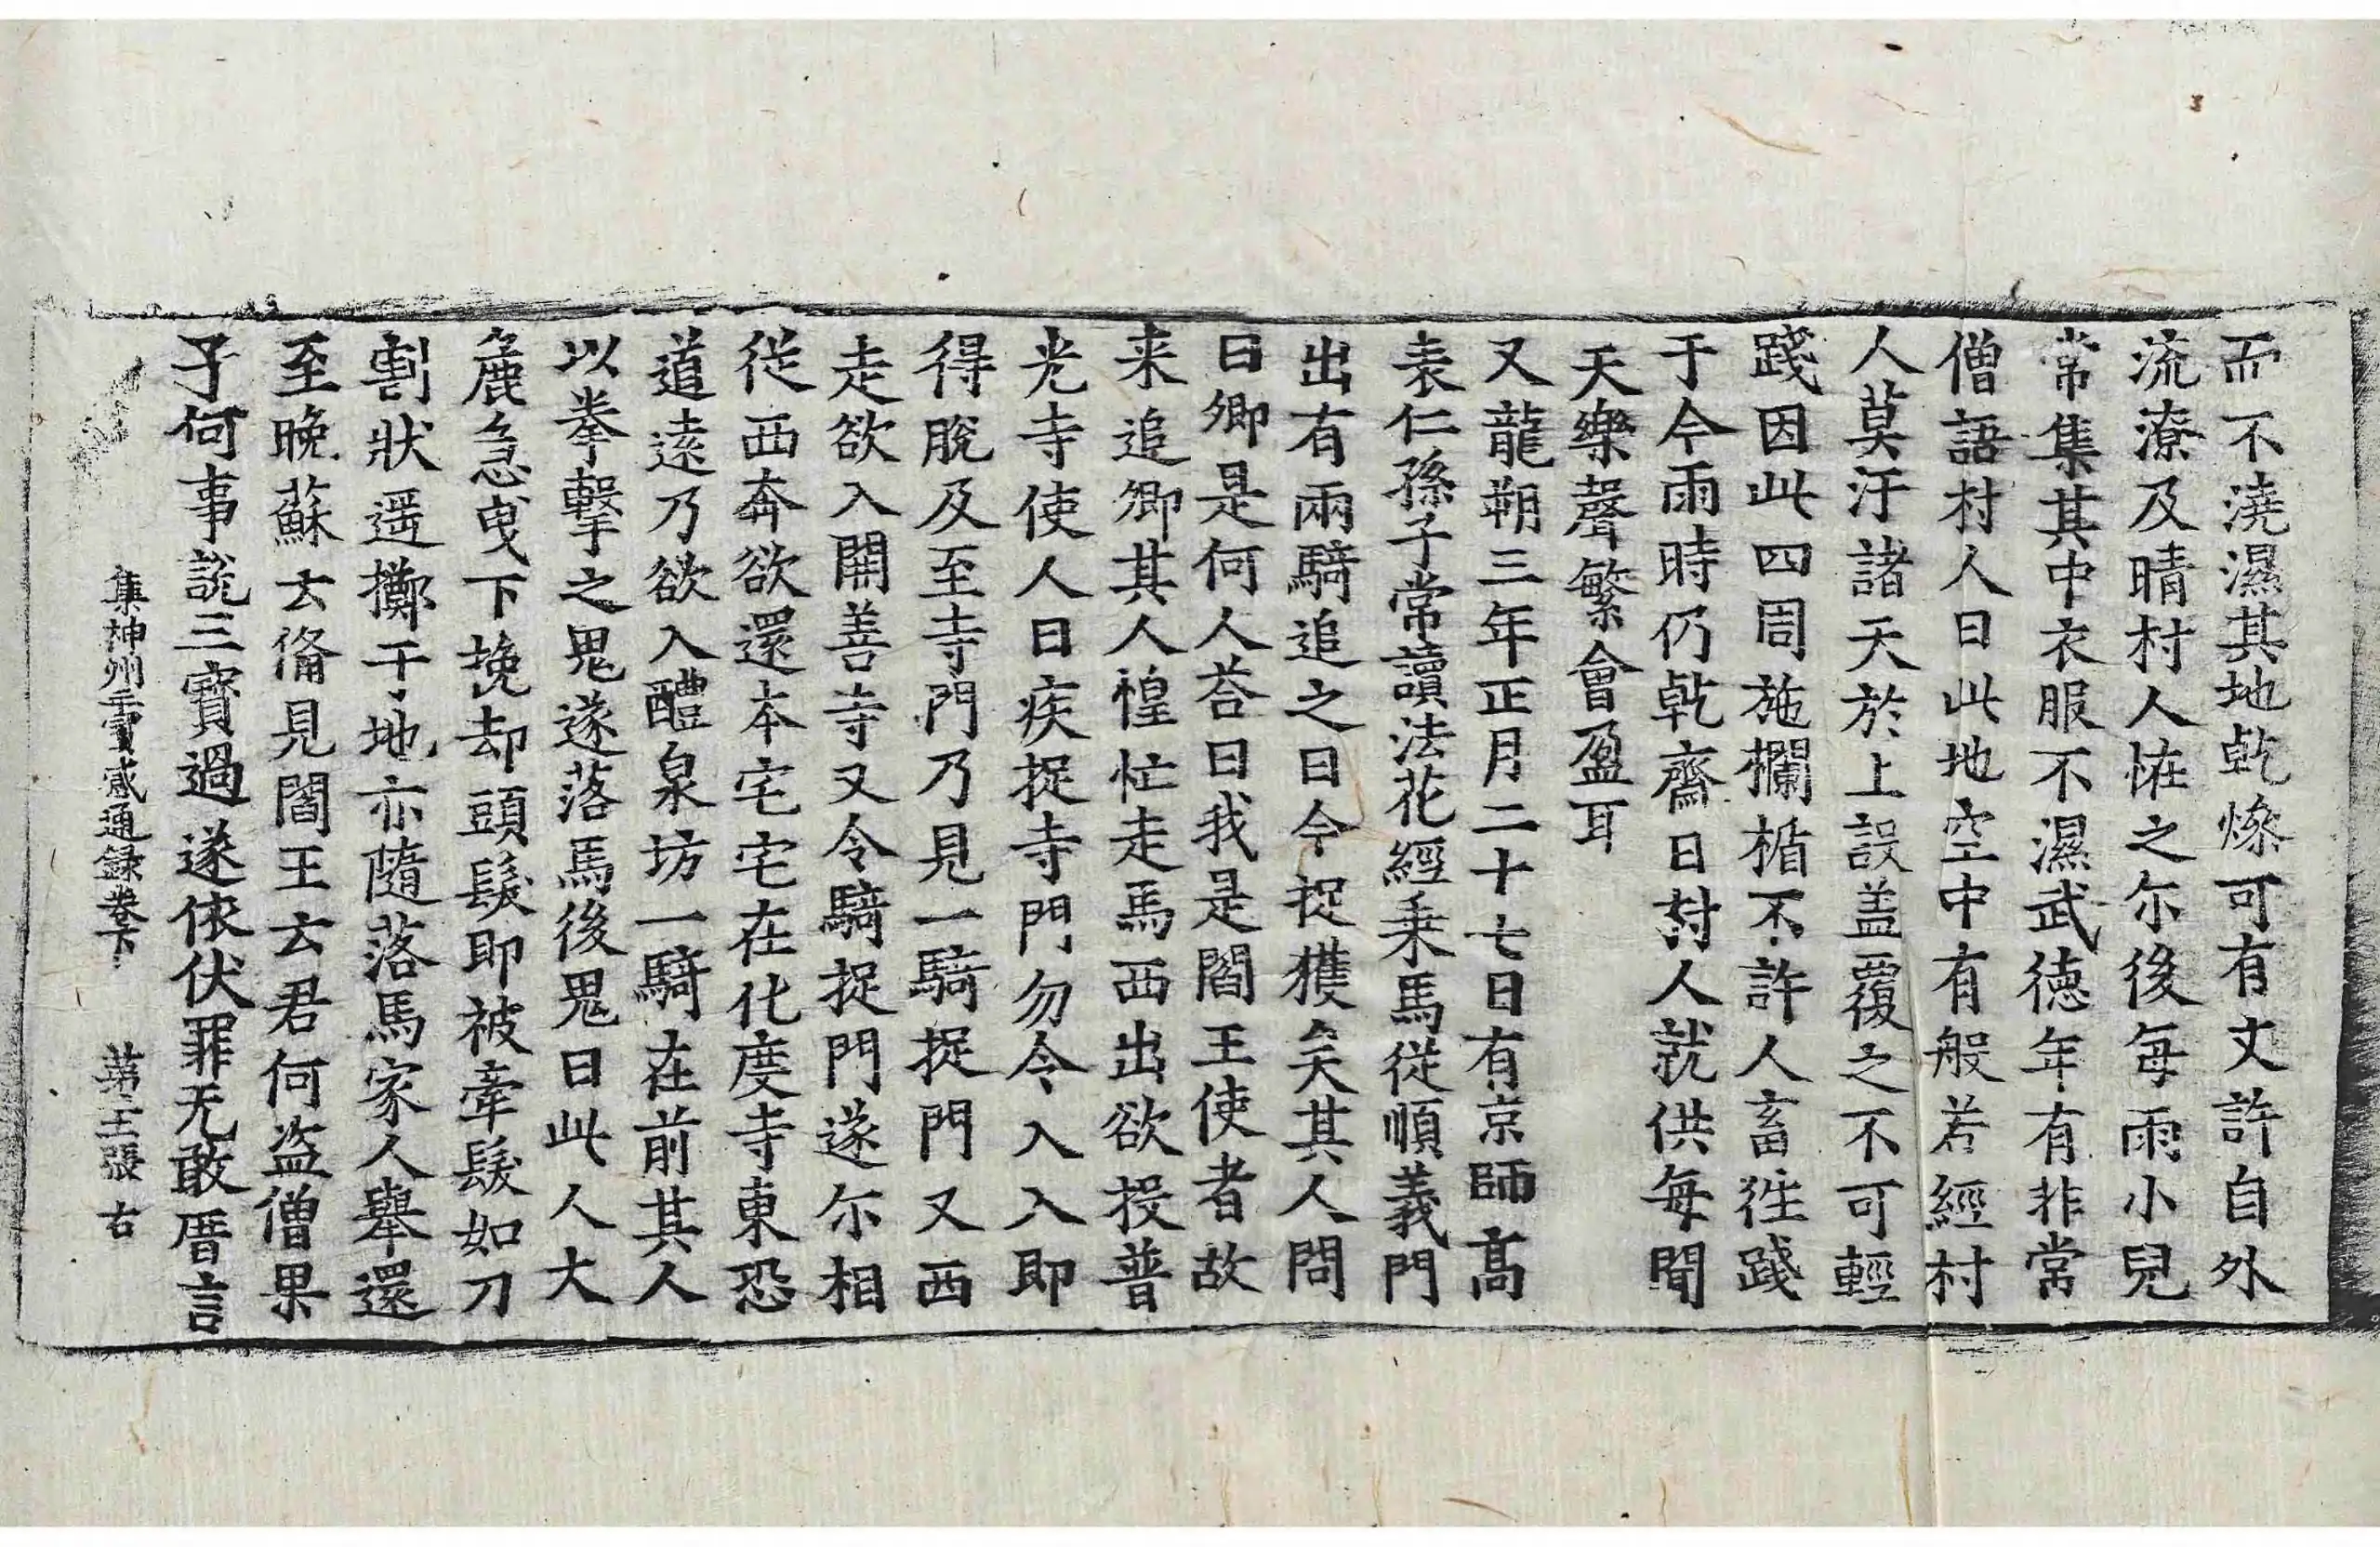 而不澆濕其地乾燥可有丈許自外
流潦及晴村人恠之尒後每雨小兒
常集其中衣服不濕武德年有非常
僧語村人曰此地空中有般若經村
人莫汙諸天於上設盖覆之不可輕
踐因此四周施欄楯不許人畜徃踐
于今雨時仍乾齋日村人就供每聞
天樂聲繁會盈耳
又龍朔三年正月二十七日有京師高
表仁孫子常讀法花經乗馬從順義門
出有兩騎追之曰今捉獲矣其人問
曰卿是何人荅曰我是閻王使者故
来追卿其人惶忙走馬西出欲投普
光寺使人曰疾捉寺門勿令入入即
得脫及至寺門乃見一騎捉門又西
走欲入開善寺又令騎捉門遂尒相
從西奔欲還本宅宅在化度寺東恐
道遠乃欲入醴泉坊一騎在前其人
以拳擊之鬼遂落馬後鬼曰此人大
麁急曳下挽却頭髮即被牽髮如刀
割狀遥擲于地亦隨落馬家人舉還
至晚蘇云俻見閻王云君何盗僧果
子何事說三寶過遂依伏罪无敢厝言
集神州三寶感通録卷下 第 張 右